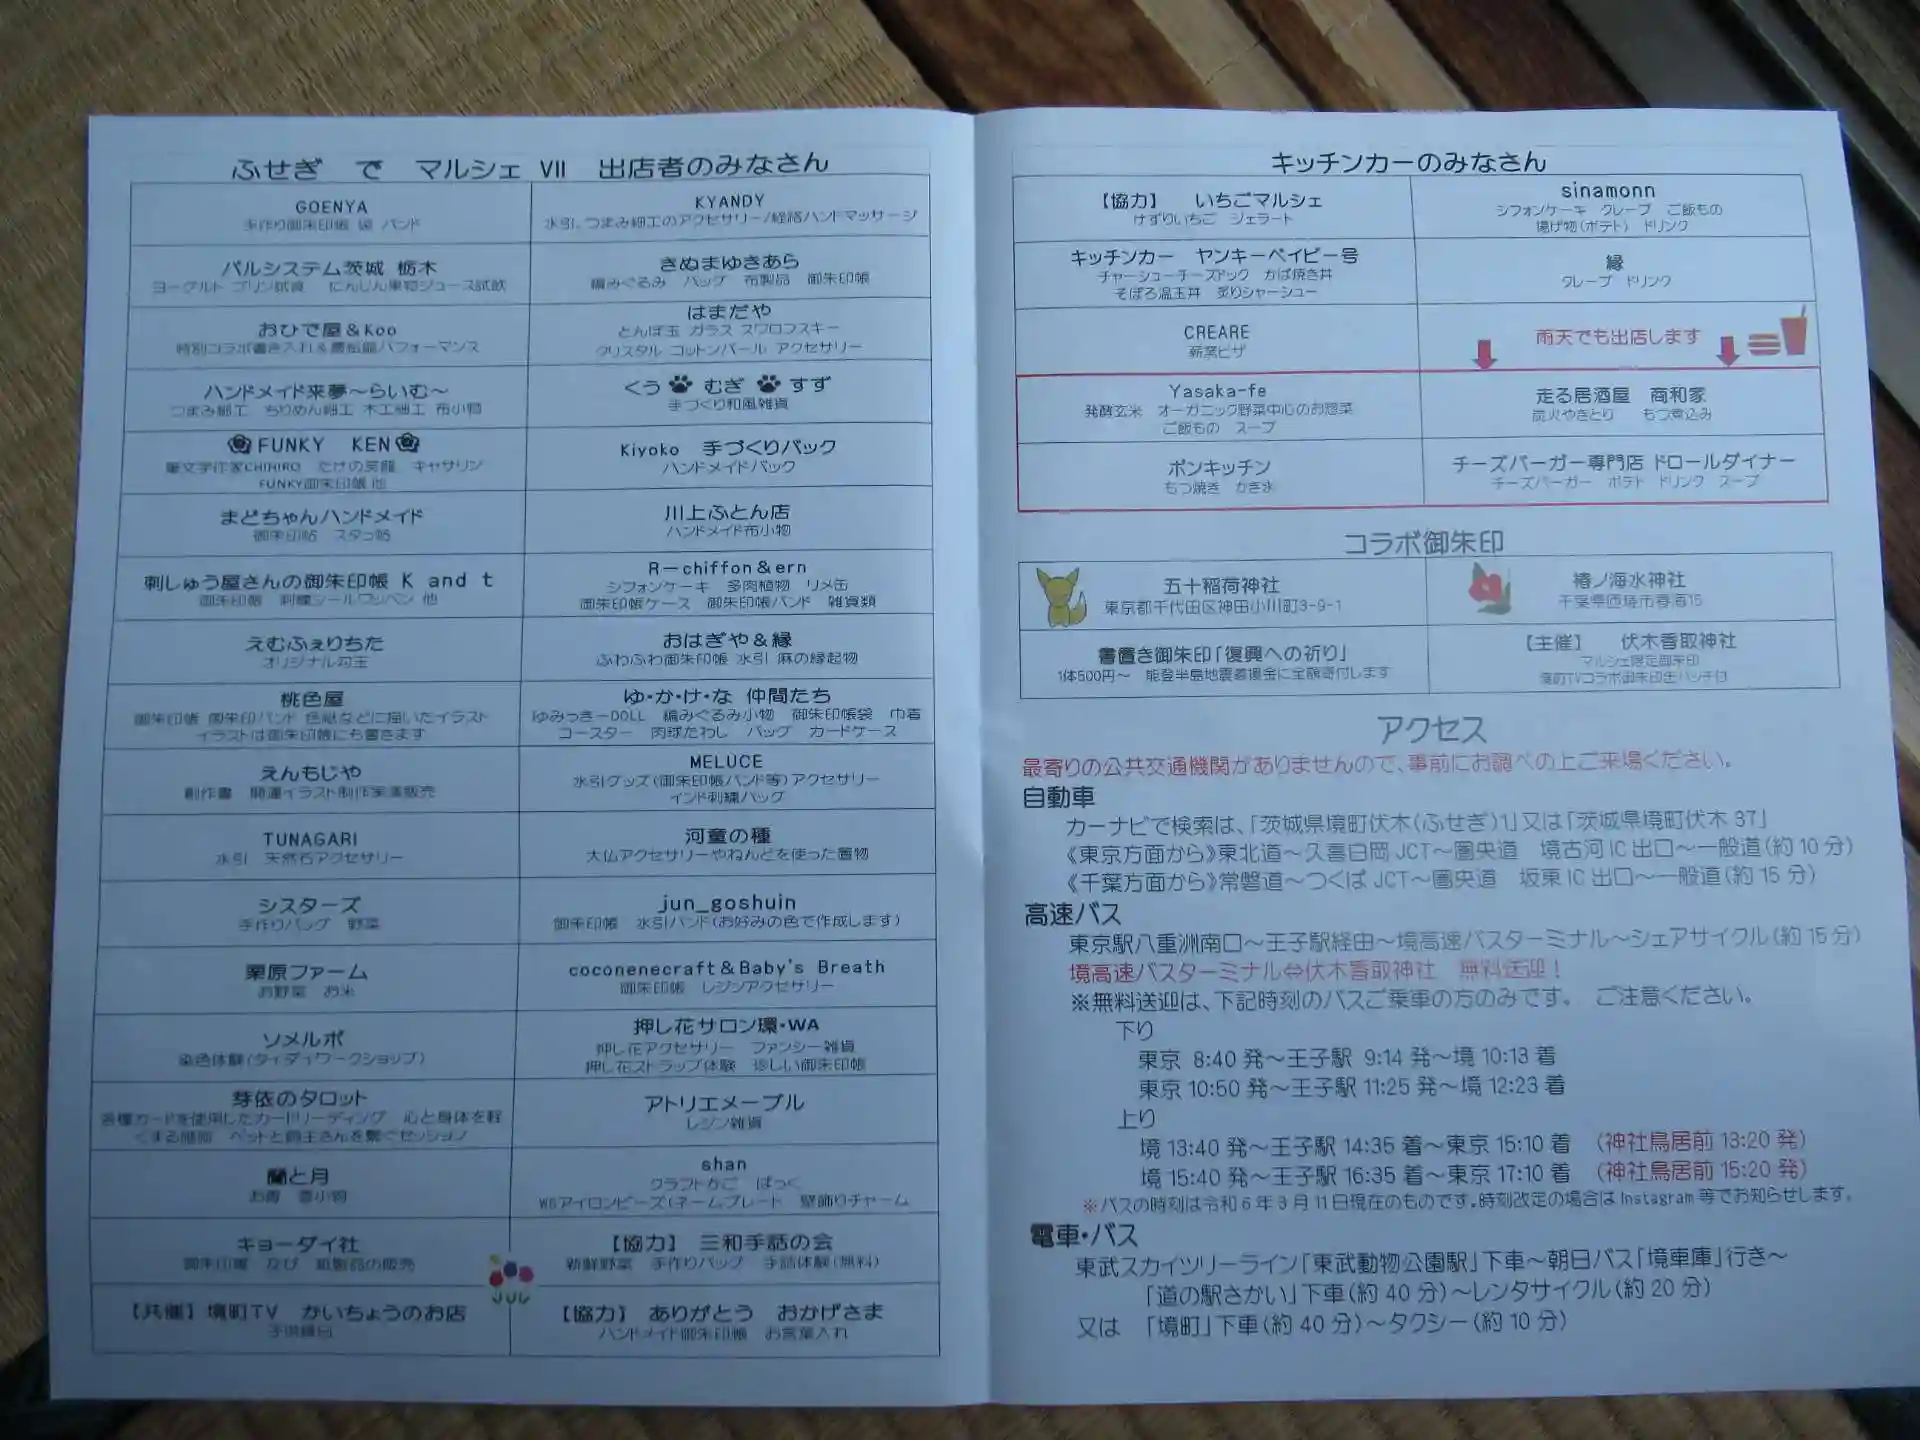 ふせぎ で マルシェ Ⅶ 出店者のみなさん
GOENYA
手作り御朱印帳 袋 バンド
KYANDY
水引、つまみ細工のアクセサリー/経絡ハンドマッサージ
パルシステム茨城 栃木
ヨーグルト プリン試食 にんじん果物ジュース試飲
きぬまゆきあら
編みぐるみ バッグ 布製品 御朱印帳
おひで屋&Koo
特別コラボ書き入れ&パフォーマンス
はまだや
とんぼ玉 ガラス スワロフスキー
クリスタル コットンパール アクセサリー
ハンドメイド来夢～らいむ～
つまみ細工 ちりめん細工 木工細工 布小物
くう むぎ すず
手づくり和風雑貨
FUNKY KEN
筆文字作家CHIHIRO たけの笑龍 キャサリン
FUNKY御朱印帳 他
Kiyoko 手づくりバック
ハンドメイドバック
まどちゃんハンドメイド
御朱印帖 スタンプ帖
川上ふとん店
ハンドメイド布小物
刺しゅう屋さんの御朱印帳 K and t
御朱印帳 刺繍シールワッペン 他
R－chiffon&ern
シフォンケーキ 多肉植物 リメ缶
御朱印帳ケース 御朱印帳バンド 雑貨類
えむふぇりちた
オリジナル勾玉
おはぎや&縁
ふわふわ御朱印帳 水引 麻の縁起物
桃色屋
御朱印帳 御朱印バンド 色紙などに描いたイラスト
イラストは御朱印帳にも書きます
ゆ・か・け・な 仲間たち
ゆみっきーDOLL 編みぐるみ小物 御朱印帳袋 巾着
コースター 肉球たわし バッグ カードケース
えんもじや
創作書 開運イラスト制作実演販売
MELUCE
水引グッズ(御朱印帳バンド等)アクセサリー
インド刺繍バッグ
TUNAGARI
水引 天然石アクセサリー
河童の種
大仏アクセサリーやねんどを使った置物
シスターズ
手作りバッグ 野菜
jun_goshuin
御朱印帳 水引バンド(お好みの色で作成します)
栗原ファーム
お野菜 お米
coconenecraft&Baby's Breath
御朱印帳 レジンアクセサリー
ソメルポ
染色体験(タイダイワークショップ)
押し花サロン環・WA
押し花アクセサリー ファンシー雑貨
押し花ストラップ体験 珍しい御朱印帳
芽依のタロット
各種カードを使用したカードリーディング 心と身体を軽
くする施術 ペットと飼主さんを繋ぐセッション
アトリエメープル
レジン雑貨
蘭と月
お香 香小物
shan
クラフトかご ばっぐ
WSアイロンビーズ(ネームプレート 壁飾りチャーム
キョーダイ社
御朱印帳 及び 紙製品の販売
【協力】 三和手話の会
新鮮野菜 手作りバッグ 手話体験(無料)
【共催】境町TV かいちょうのお店
子供縁日
【協力】 ありがとう おかげさま
ハンドメイド御朱印帳 お言葉入れ
キッチンカーのみなさん
【協力】 いちごマルシェ
けずりいちご ジェラート
sinamonn
シフォンケーキ クレープ ご飯もの
揚げ物(ポテト) ドリンク
キッチンカー ヤンキーベイビー号
チャーシューチーズドック かば焼き丼
そぼろ温玉丼 炙りシャーシュー
縁
クレープ ドリンク
CREARE
薪窯ピザ
雨天でも出店します
Yasaka-fe
発酵玄米 オーガニック野菜中心のお惣菜
ご飯もの スープ
走る居酒屋 商和家
炭火やきとり もつ煮込み
ポンキッチン
もつ焼き かき氷
チーズバーガー専門店 ドロールダイナー
チーズバーガー ポテト ドリンク スープ
コラボ御朱印
五十稲荷神社
東京都千代田区神田小川町3-9-1
椿ノ海水神社
千葉県匝瑳市春海15
書置き御朱印「復興への祈り」
1体500円～ 能登半島地震義援金に全額寄付します
【主催】 伏木香取神社
マルシェ限定御朱印
境町TVコラボ御朱印缶バッチ付
アクセス
最寄りの公共交通機関がありませんので、事前にお調べの上ご来場ください。
自動車
カーナビで検索は、「茨城県境町伏木(ふせぎ)1」又は「茨城県境町伏木 37」
《東京方面から》東北道～久喜白岡 JCT～圏央道 境古河 IC 出口～一般道(約 10 分)
《千葉方面から》常磐道～つくば JCT～圏央道 坂東 IC 出口～一般道(約 15 分)
高速バス
東京駅八重洲南口～王子駅経由～境高速バスターミナル～シェアサイクル(約 15 分)
境高速バスターミナル⇔伏木香取神社 無料送迎！
※無料送迎は、下記時刻のバスご乗車の方のみです。 ご注意ください。
下り
東京 8:40 発～王子駅 9:14 発～境 10:13 着
東京 10:50 発～王子駅 11:25 発～境 12:23 着
上り
境 13:40 発～王子駅 14:35 着～東京 15:10 着 (神社鳥居前 13:20 発)
境 15:40 発～王子駅 16:35 着～東京 17:10 着 (神社鳥居前 15:20 発)
※バスの時刻は令和 6 年 3 月 11 日現在のものです。時刻改定の場合は Instagram 等でお知らせします。
電車・バス
東武スカイツリーライン「東武動物公園駅」下車～朝日バス「境車庫」行き～
「道の駅さかい」下車(約 40 分)～レンタサイクル(約 20 分)
又は 「境町」下車(約 40 分)～タクシー(約 10 分)